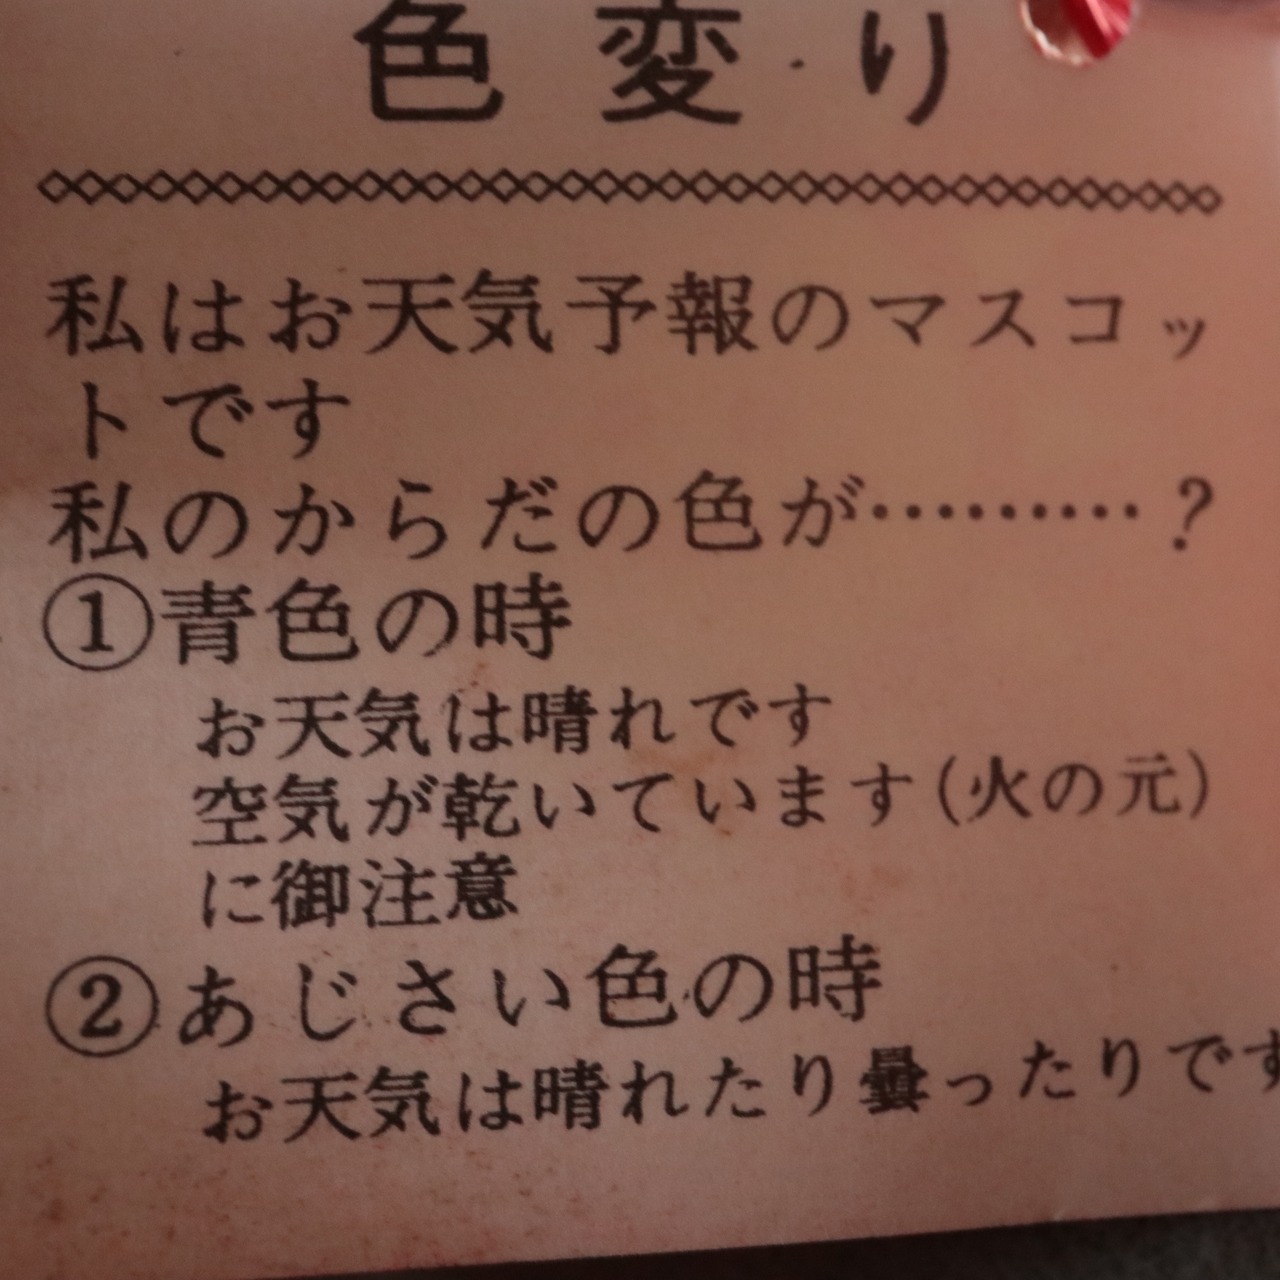 色変り
私はお天気予報のマスコッ
トです
私のからだの色が··········?
①青色の時
お天気は晴れです
空気が乾いています(火の元)
に御注意
②あじさい色の時
お天気は晴れたり曇ったりです